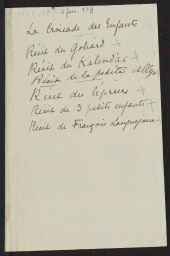 La Croisade des Enfants
Récit du Goliard
Récit du Kalandar
Récit de la petite Allys
Récit du lépreux
Récit de 3 petits enfants
Récit de François Longuejoue